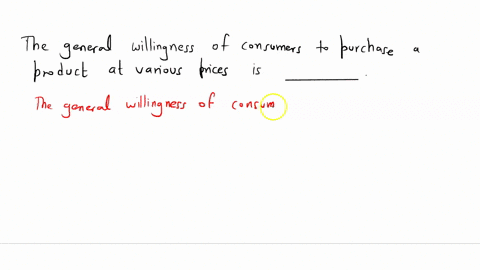 The general willingness of consumers to purchase a
product at various prices is ________.
The general willingness of consum